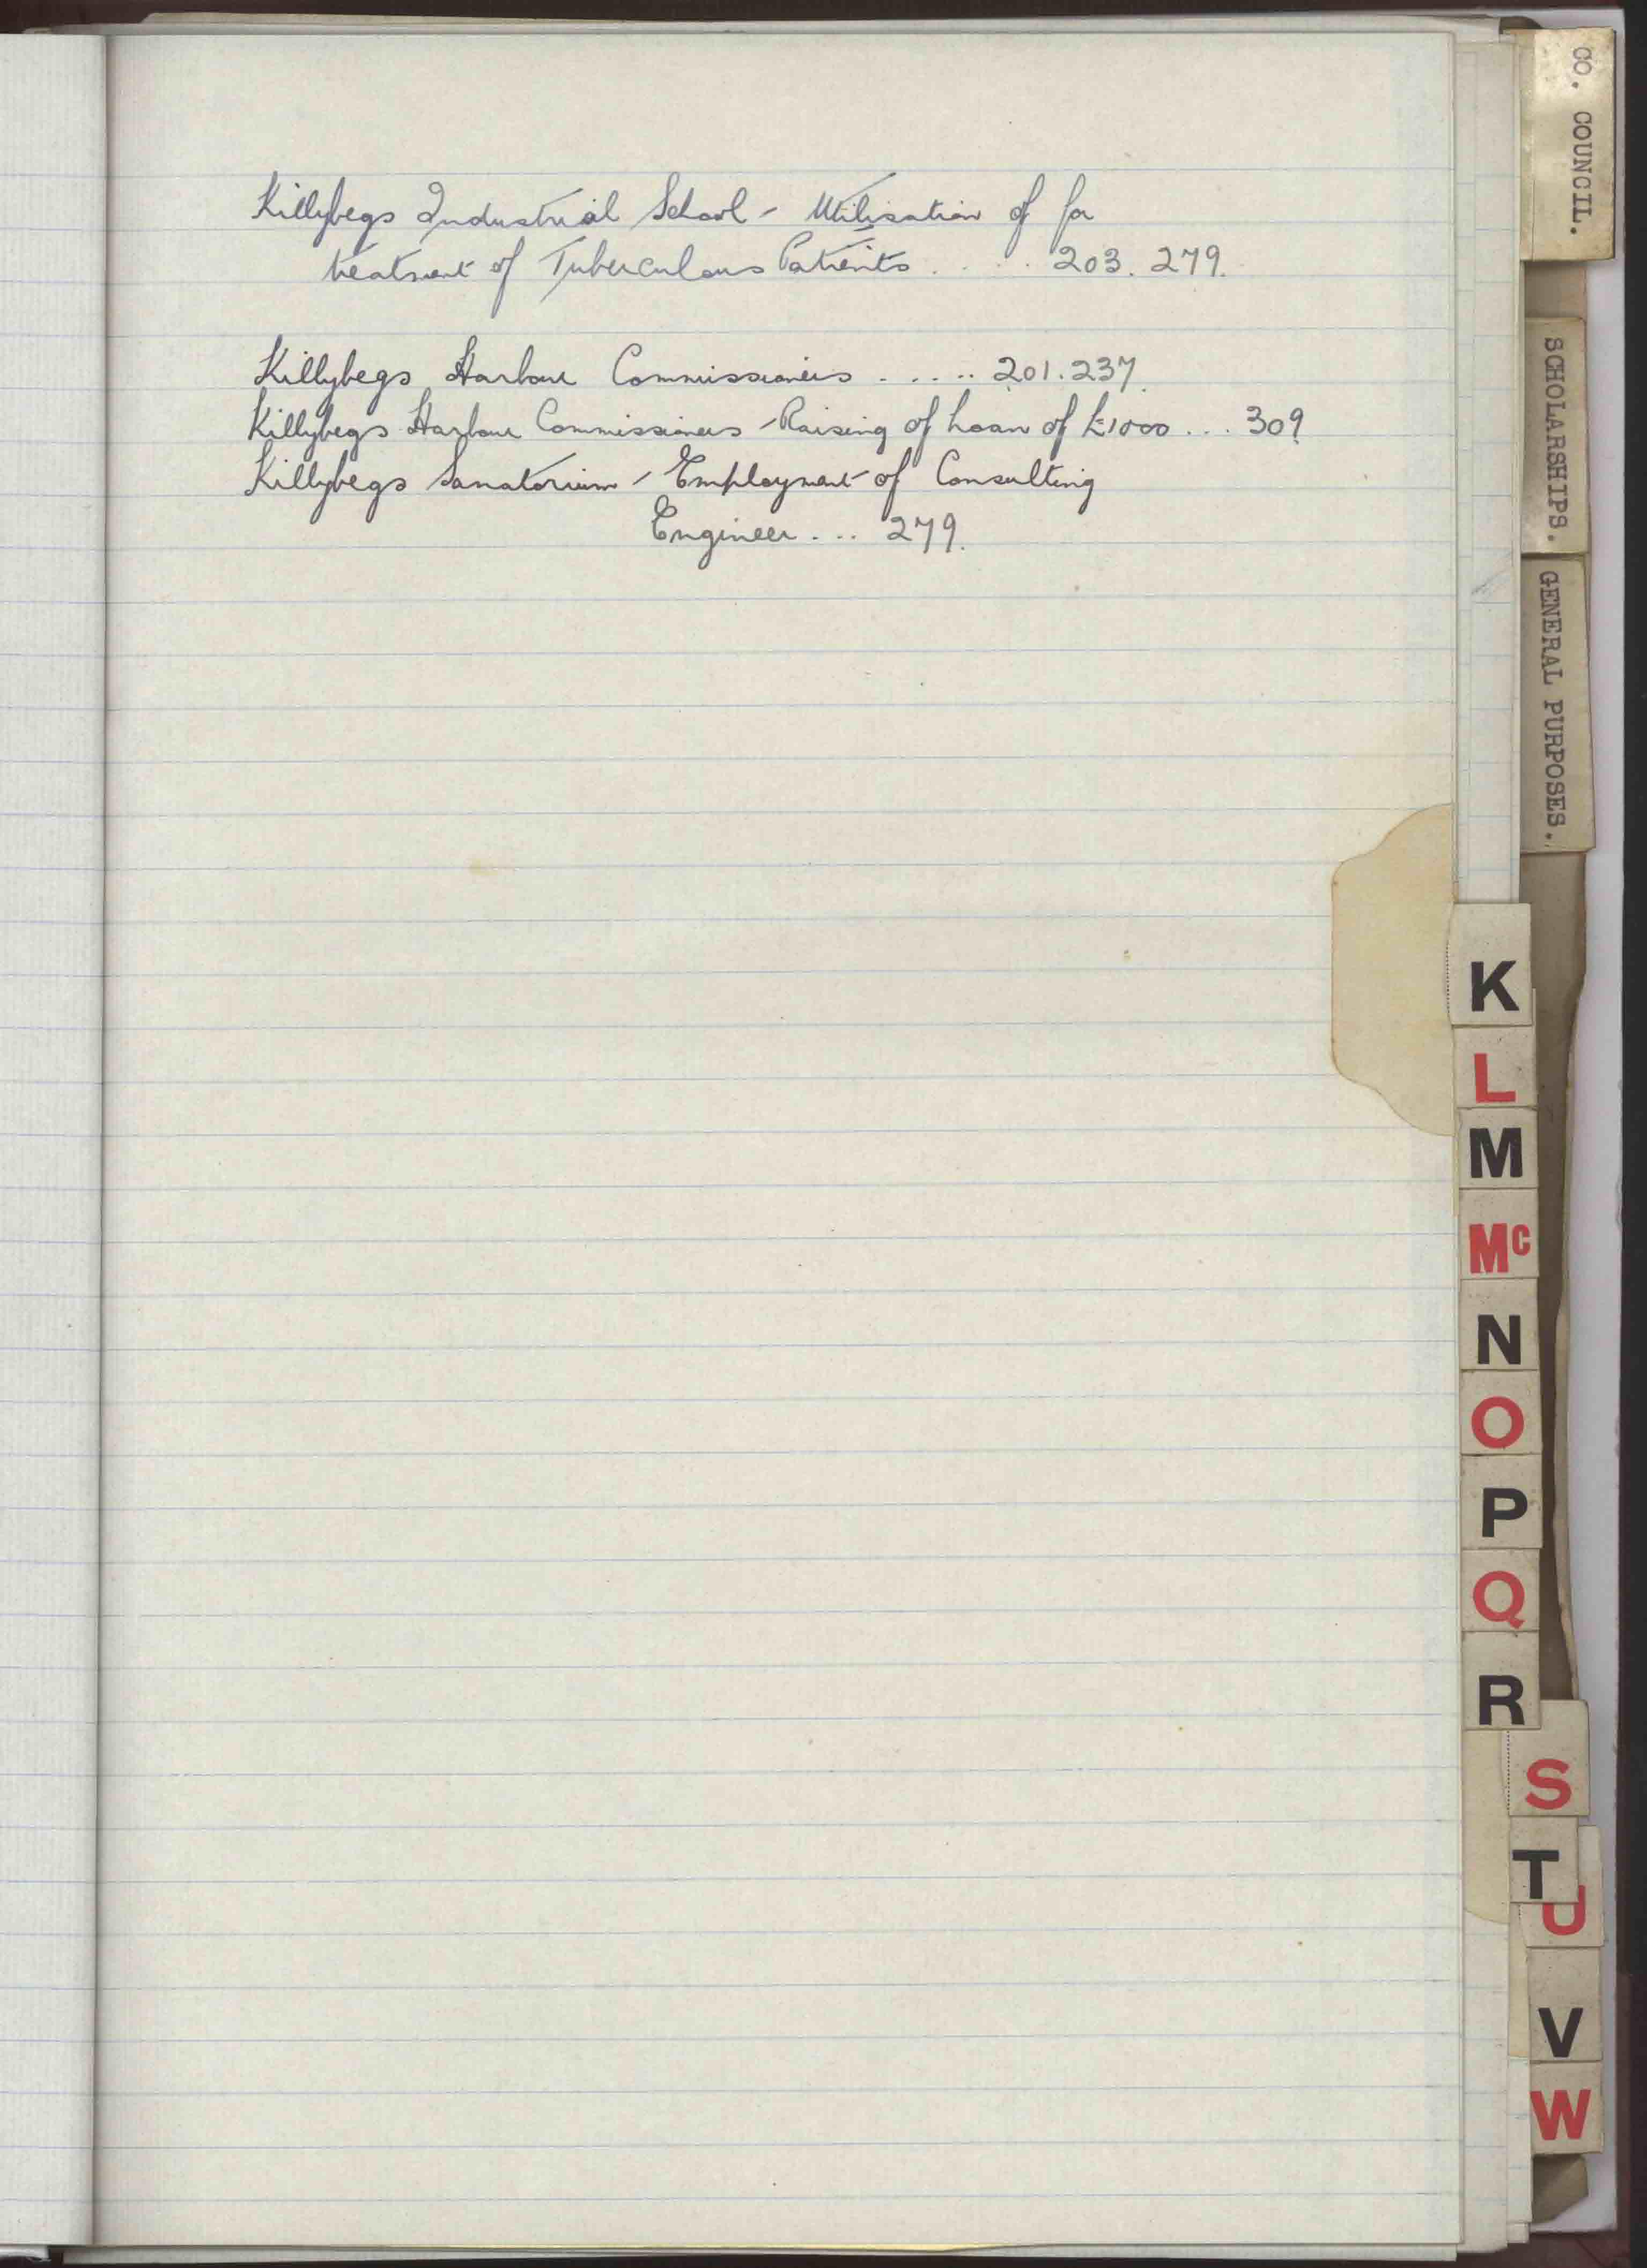 Killybegs Industrial School - Utilisation of for
treatment of Tuberculous Patients ..... 203. 279.
Killybegs Harbour Commissioners ...... 201. 237.
Killybegs Harbour Commissioners - Raising of Loan of £1000 ... 309.
Killybegs Sanatorium - Employment of Consulting
Engineer ... 279.
CO. COUNCIL.
SCHOLARSHIPS.
GENERAL PURPOSES.
K
L
M
Mc
N
O
P
Q
R
S
T
U
V
W